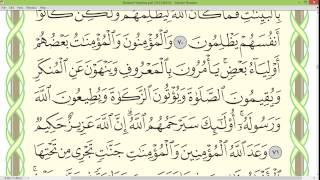 بِٱلْبَيِّنَٰتِ فَمَا كَانَ ٱللَّهُ لِيَظْلِمَهُمْ وَلَٰكِن كَانُوٓا۟
أَنفُسَهُمْ يَظْلِمُونَ ٧٠ وَٱلْمُؤْمِنُونَ وَٱلْمُؤْمِنَٰتُ بَعْضُهُمْ
أَوْلِيَآءُ بَعْضٍ ۚ يَأْمُرُونَ بِٱلْمَعْرُوفِ وَيَنْهَوْنَ عَنِ ٱلْمُنكَرِ
وَيُقِيمُونَ ٱلصَّلَوٰةَ وَيُؤْتُونَ ٱلزَّكَوٰةَ وَيُطِيعُونَ ٱللَّهَ
وَرَسُولَهُۥٓ ۚ أُو۟لَٰٓئِكَ سَيَرْحَمُهُمُ ٱللَّهُ ۗ إِنَّ ٱللَّهَ عَزِيزٌ حَكِيمٌ
٧١ وَعَدَ ٱللَّهُ ٱلْمُؤْمِنِينَ وَٱلْمُؤْمِنَٰتِ جَنَّٰتٍ تَجْرِى مِن تَحْتِهَا